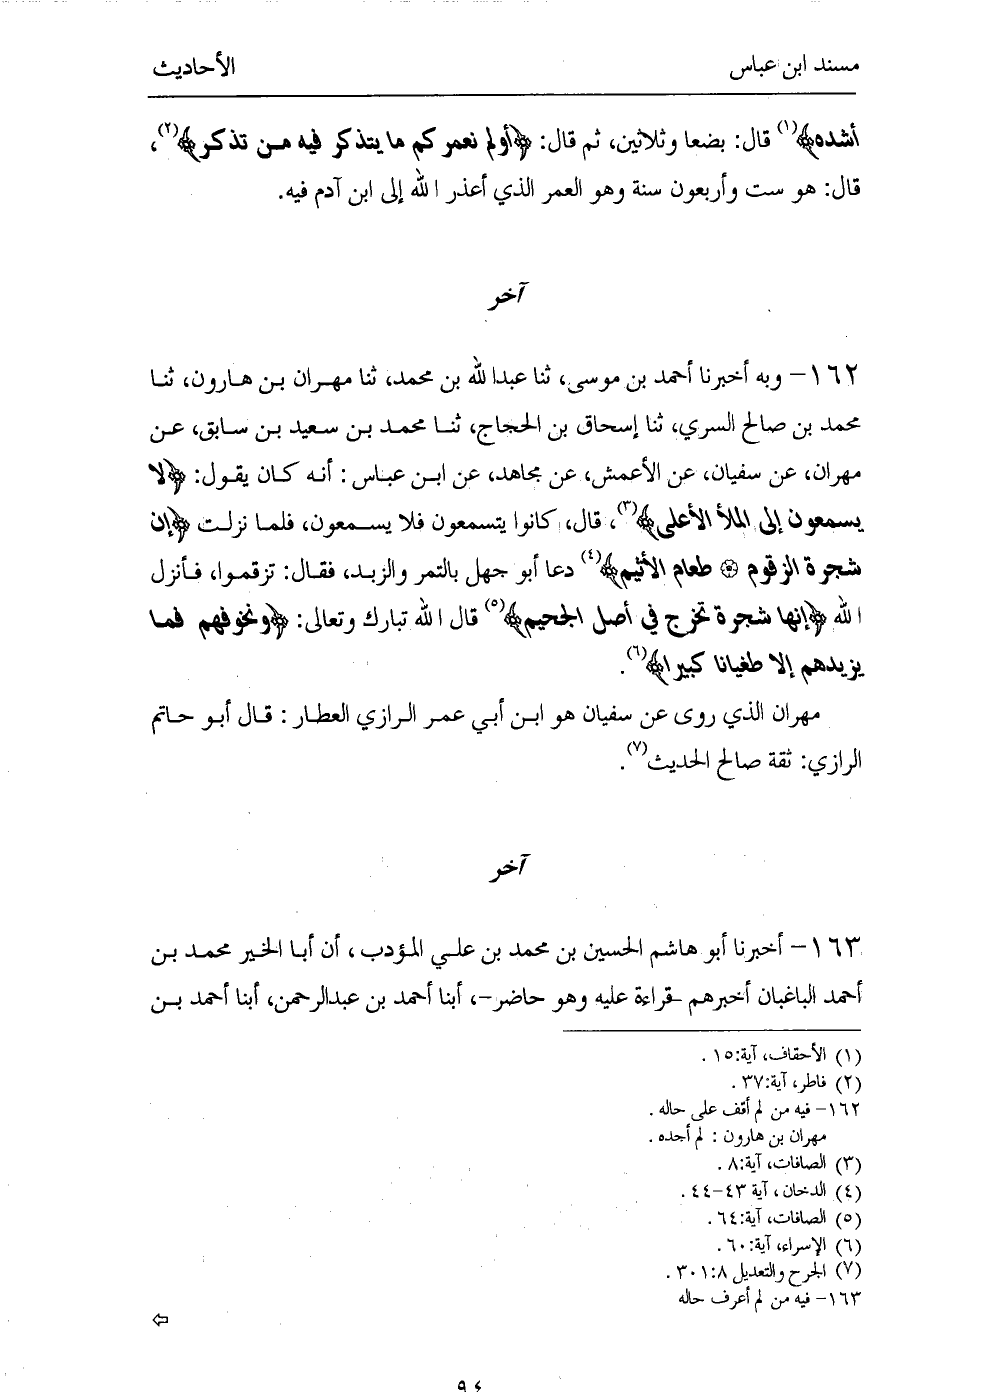 مسند ابن عباس
الأحاديث
أشده﴾(١) قال: بضعا وثلاثين، ثم قال: ﴿أولم نعمر كم ما يتذكر فيه مـن تذكـر﴾(٢)،
قال: هو ست وأربعون سنة وهو العمر الذي أعذر الله إلى ابن آدم فيه.
آخر
١٦٢- وبه أخبرنا أحمد بن موسى، ثنا عبدالله بن محمد، ثنا مهـران بـن هـارون، ثنـا
محمد بن صالح السري، ثنا إسحاق بن الحجاج، ثنـا محمـد بـن سـعيد بـن سـابق، عـن
مهران، عن سفيان، عن الأعمش، عن مجاهد، عن ابـن عبـاس : أنـه كـان يقـول: ﴿لا
يسمعون إلى الملأ الأعلى﴾(٣)، قال، كانوا يتسمعون فلا يسـمعون، فلمـا نزلـت ﴿إن
شجرة الزقوم ۞ طعام الأثيم﴾(٤) دعا أبو جهل بالتمر والزبـد، فقـال: تزقمـوا، فـأنزل
الله ﴿إنها شجرة تخرج في أصل الجحيم﴾(٥) قال الله تبارك وتعالى: ﴿ونخوفهم فمـا
يزيدهم إلا طغيانا كبيرا﴾(٦).
مهران الذي روى عن سفيان هو ابـن أبـي عمـر الـرازي العطـار : قـال أبـو حـاتم
الرازي: ثقة صالح الحديث(٧).
آخر
١٦٣- أخبرنا أبو هاشم الحسين بن محمد بن علـي المـؤدب ، أن أبـا الخـير محمـد بـن
أحمد الباغبان أخبرهم -قراءة عليه وهو حاضر-، أبنا أحمد بن عبدالرحمن، أبنا أحمد بـن
(١) الأحقاف، آية:١٥ .
(٢) فاطر، آية:٣٧ .
١٦٢- فيه من لم أقف على حاله .
مهران بن هارون : لم أجده .
(٣) الصافات، آية:٨ .
(٤) الدخان ، آية ٤٣-٤٤ .
(٥) الصافات، آية:٦٤ .
(٦) الإسراء، آية:٦٠ .
(٧) الجرح والتعديل ٣٠١:٨ .
١٦٣- فيه من لم أعرف حاله
⇦
٩٤